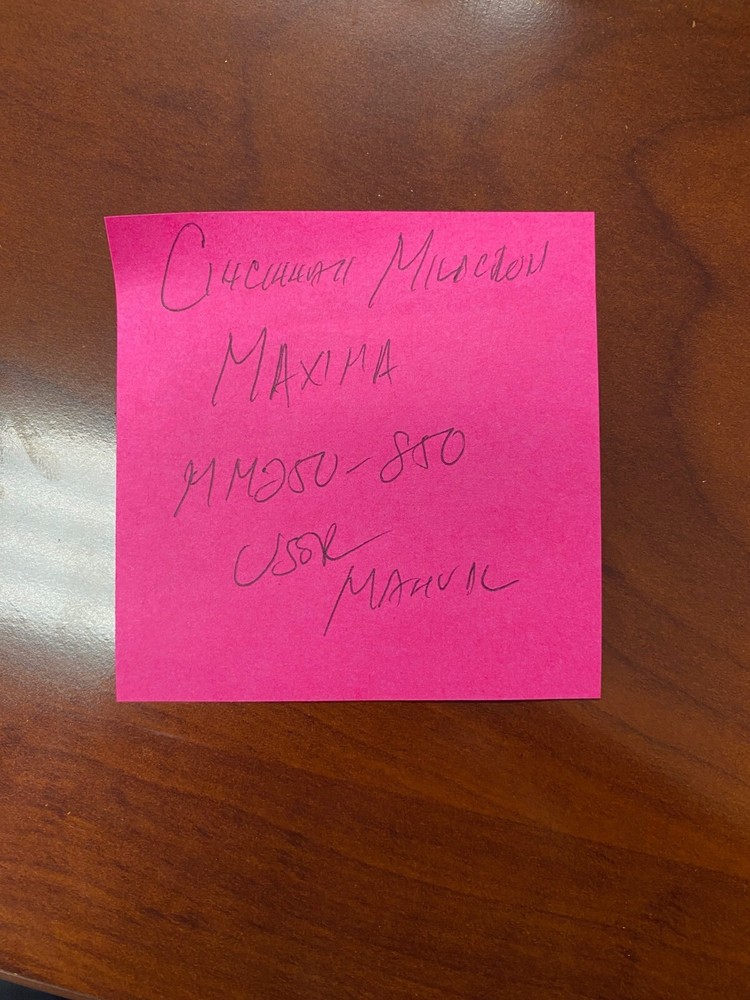 Cincinnati Milacron
Maxima
MM250-850
User
Manual